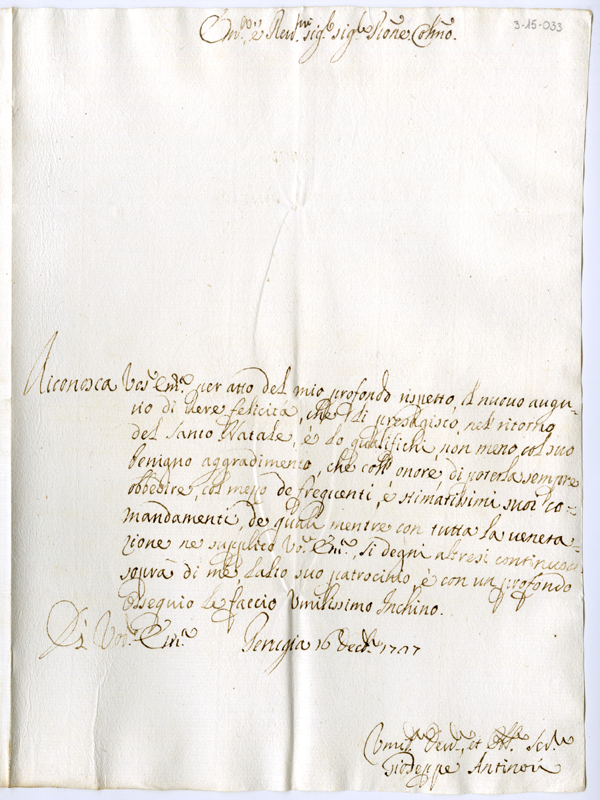 3-15-033
Em.mo e Rev.mo sig.re sig.re P'rone Col.mo
Riconosca Vos.a Em.a per atto del mio profondo rispetto, il nuovo augu-
rio di vere felicità, che Le presagisco nel ritorno
del Santo Natale, è lo qualifichi non meno col suo
benigno aggradimento, che coll'onore di poterla sempre
obbedire, col mezo de frequenti, è stimatissimi suoi co-
mandamenti, de quali mentre con tutta la venera-
zione ne supplico Vos.a Em.a, si degni altresi continuar
sopra di me l'alto suo patrocinio, è con un profondo
ossequio le faccio Umilissimo Inchino.
Di Vos.a Em.a Perugia 16 Decb.e 1707
Umil.mo Dev.mo et Obb.mo Ser.re
Gioseppe Antinori